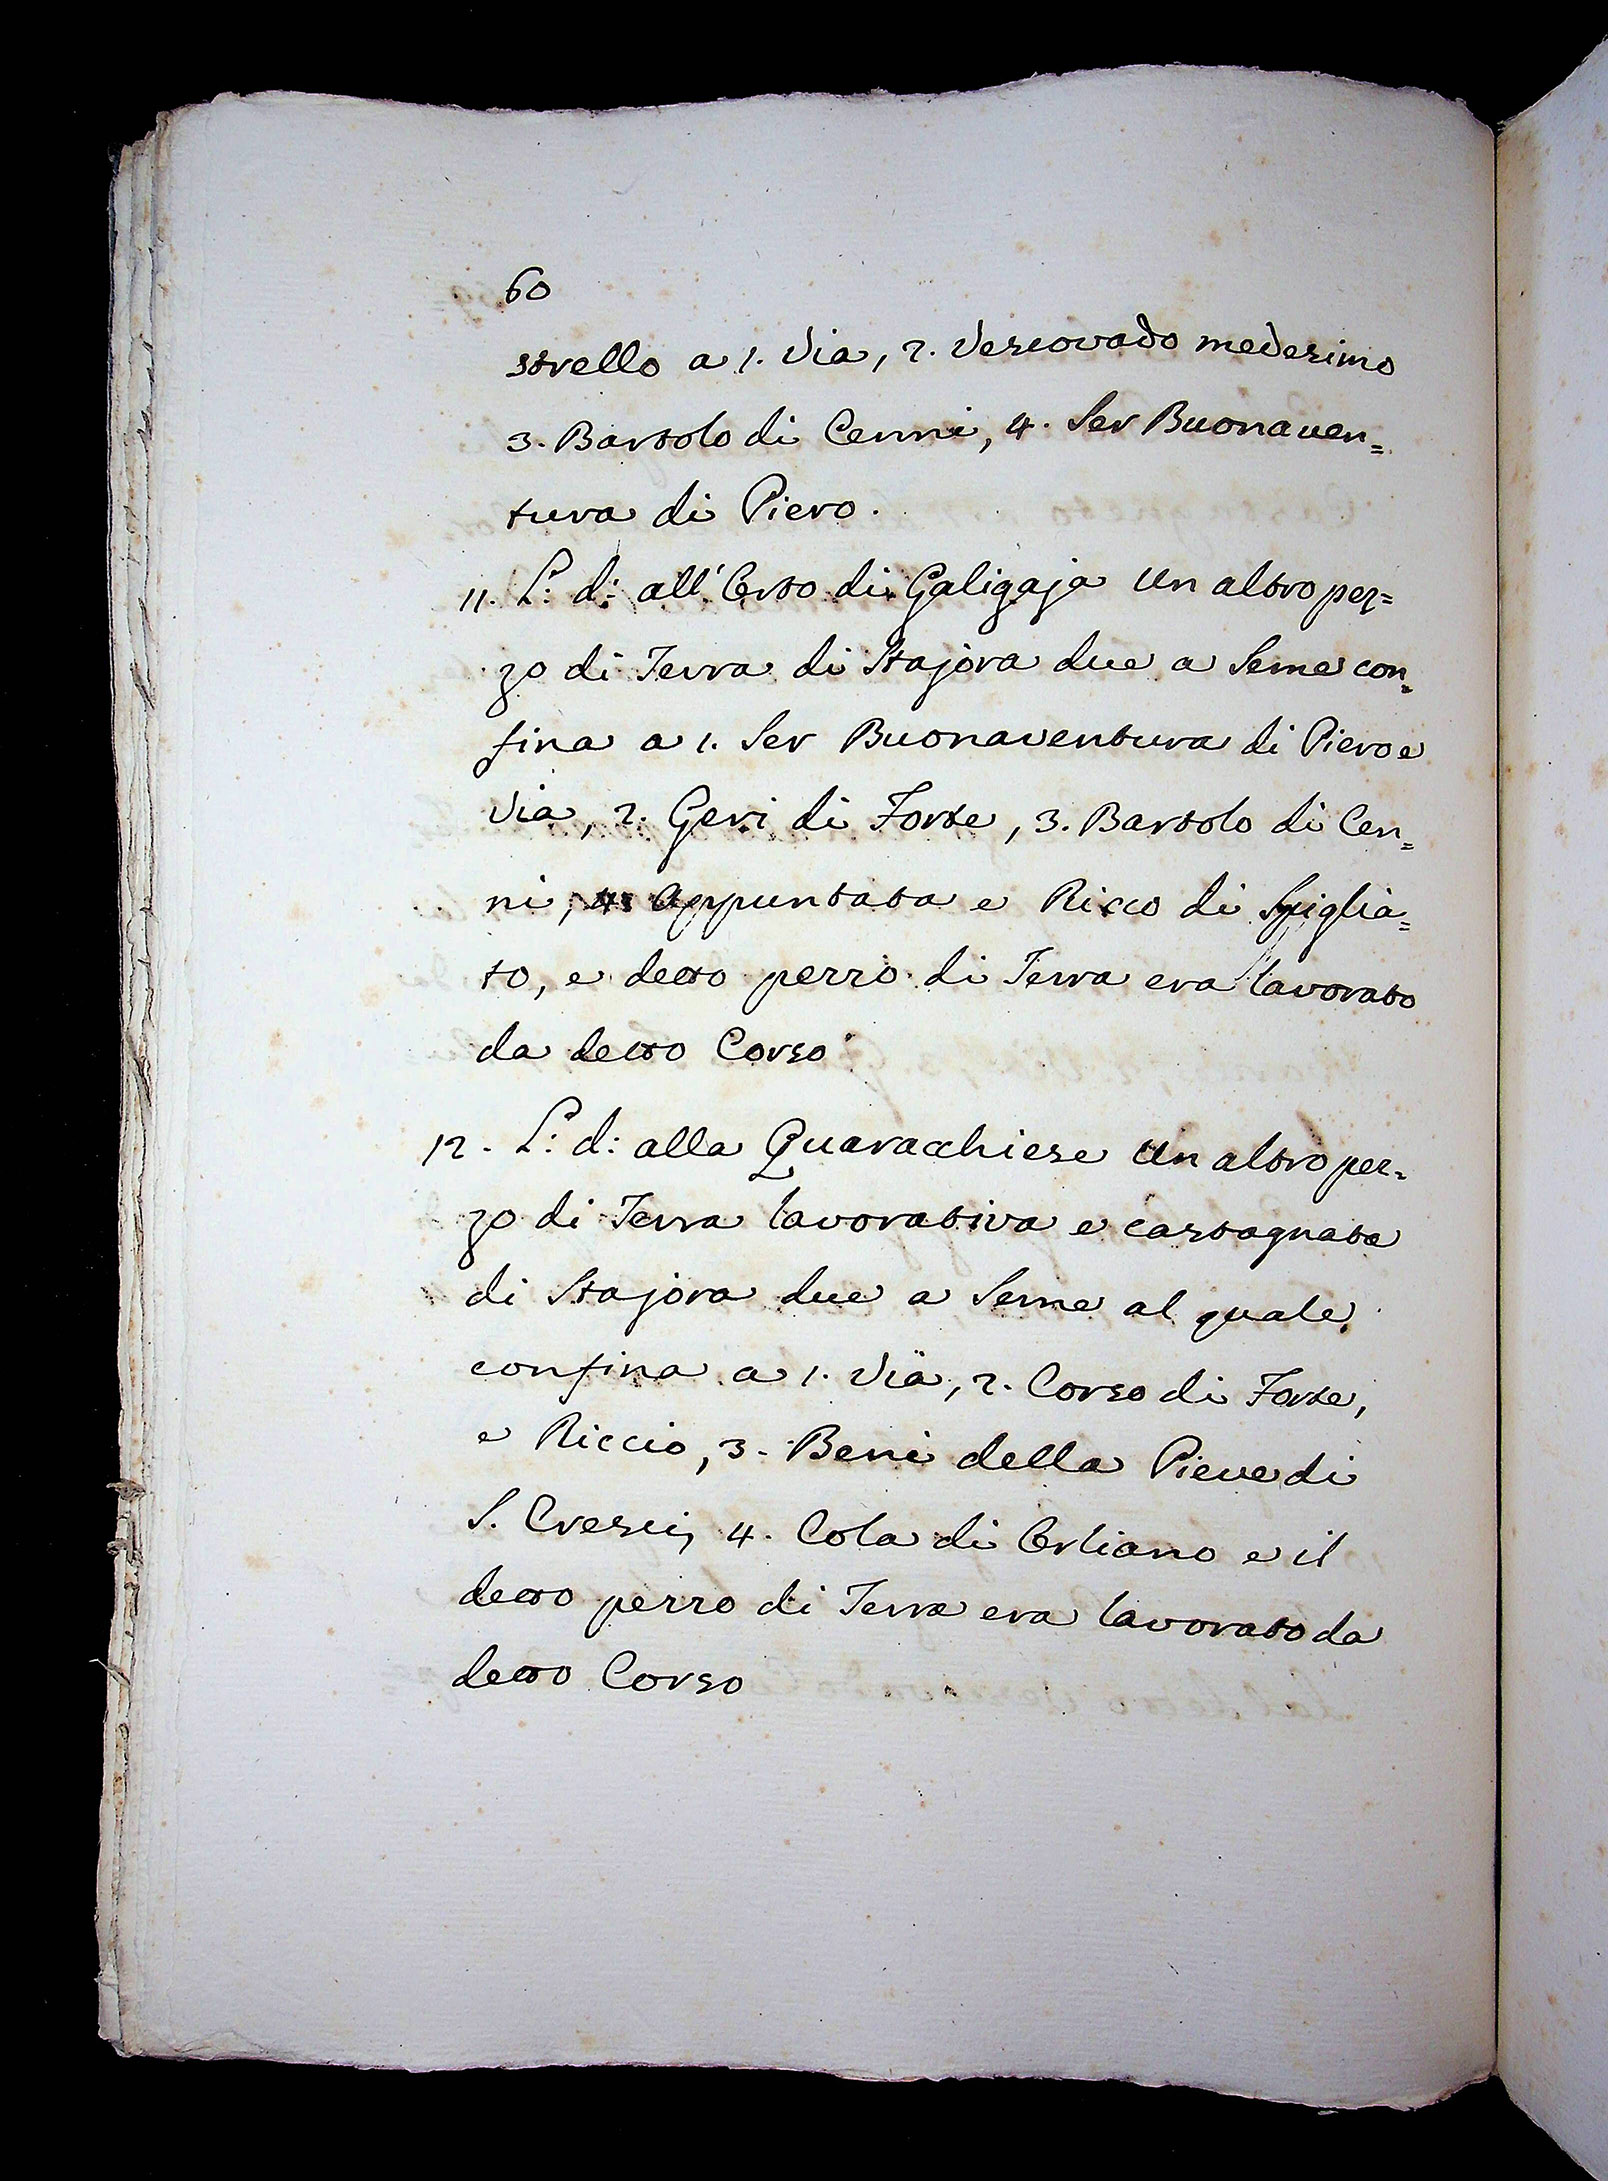 60
strello a 1. Via, 2. Vescovado medesimo
3. Bartolo di Cenni, 4. Ser Buonaven=
tura di Piero.
11. L: d: all' Erto di Galigaja un altro pez=
zo di Terra di Stajora due a Seme con=
fina a 1. Ser Buonaventura di Piero e
Via, 2. Geri di Forte, 3. Bartolo di Cen=
ni, 4. Appuntata e Ricco di Spiglia=
to, e detto pezzo di Terra era lavorato
da detto Corso
12. L: d: alla Quaracchiese un altro pez=
zo di Terra lavorativa e castagnata
di Stajora due a Seme al quale,
confina a 1. Via, 2. Corso di Forte,
e Riccio, 3. Beni della Pieve di
S. Cresci, 4. Cola di Orliano e il
detto pezzo di Terra era lavorato da
detto Corso